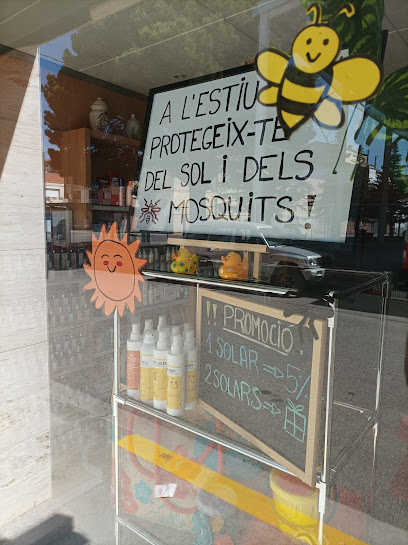 A L'ESTIU
PROTEGEIX-TE
DEL SOL I DELS
MOSQUITS!
"PROMOCIÓ"
1 SOLAR => 5%
2 SOLARS =>